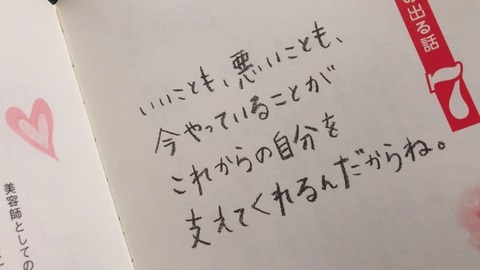 の出る話
7
いいことも、悪いことも、
今やっていることが
これからの自分を
支えてくれるんだからね。
美容師としての